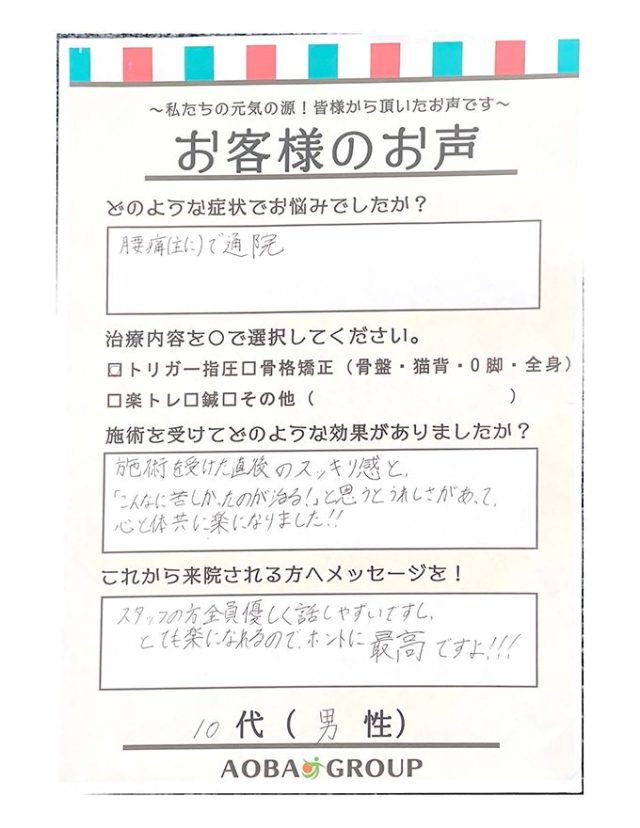 ～私たちの元気の源！皆様から頂いたお声です～
お客様のお声
どのような症状でお悩みでしたか？
腰痛(主に)で通院
治療内容を〇で選択してください。
□トリガー指圧□骨格矯正（骨盤・猫背・O脚・全身）
□楽トレ□鍼□その他（　　　　　　　　　　）
施術を受けてどのような効果がありましたか？
施術を受けた直後のスッキリ感と、
「こんなに苦しかったのが治る！」と思うとうれしさがあって、
心と体共に楽になりました!!
これから来院される方へメッセージを！
スタッフの方全員優しく話しやすいですし、
とても楽になれるので、ホントに最高ですよ!!!
10代（男性）
AOBA GROUP